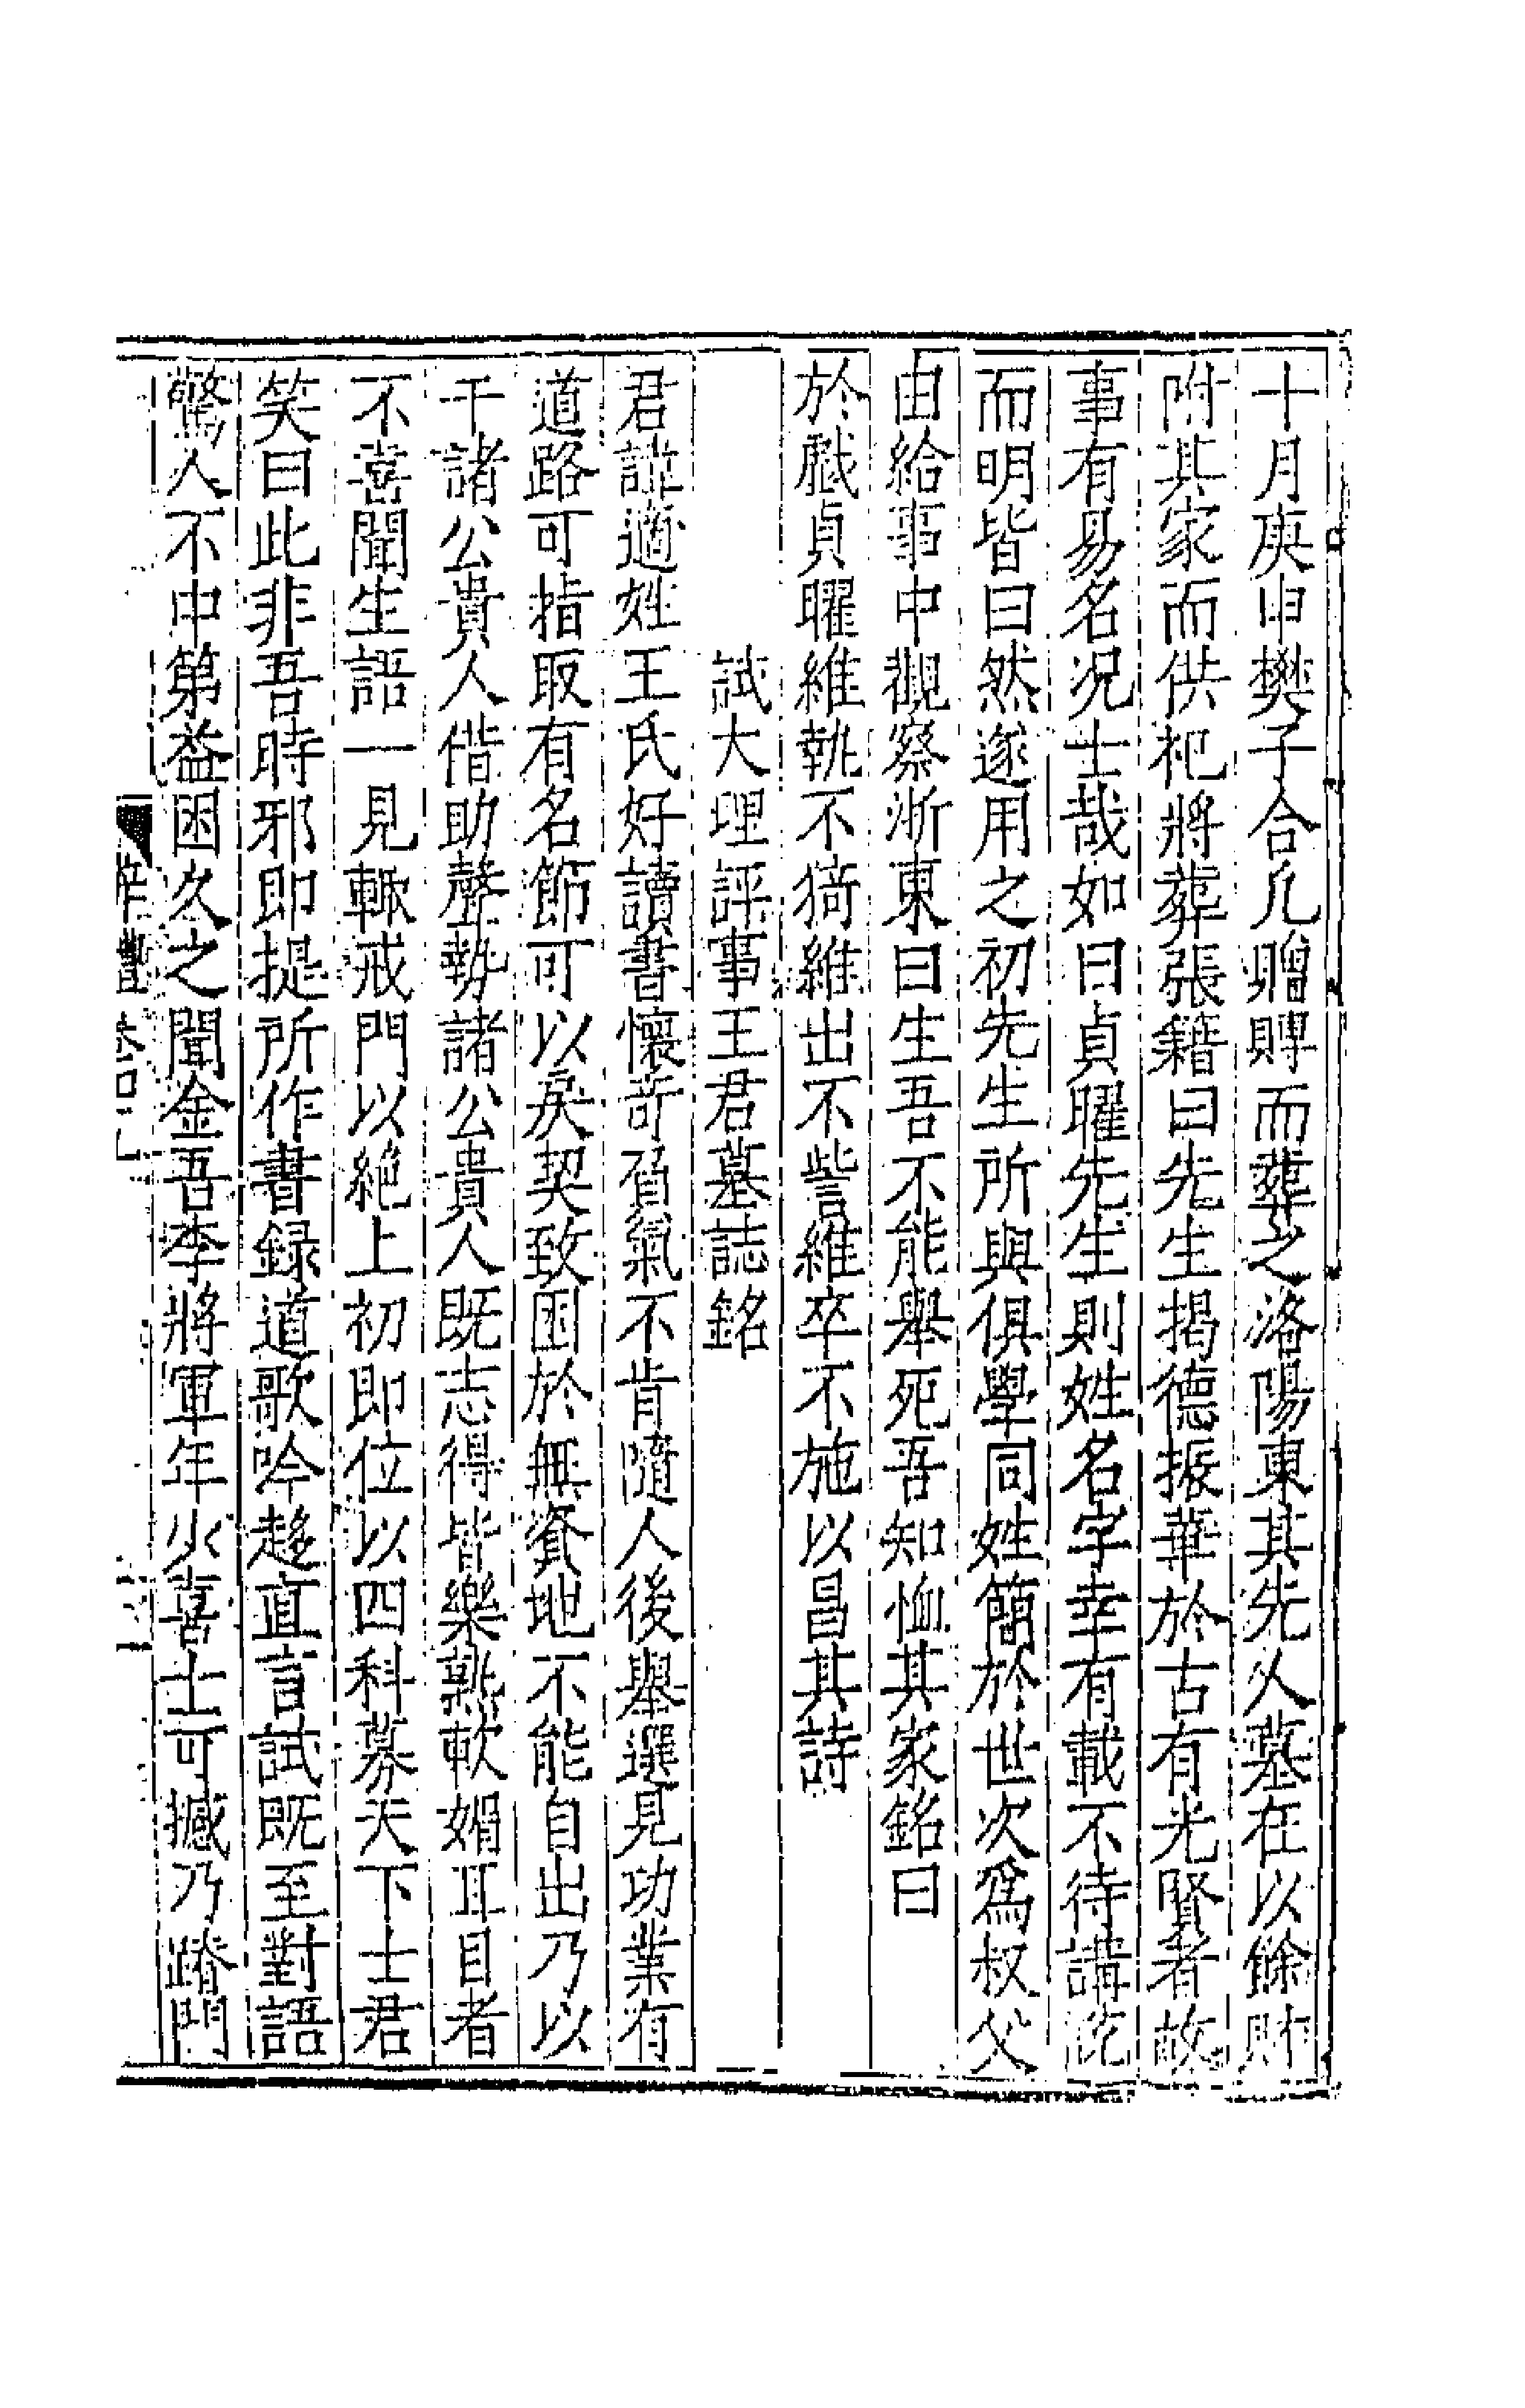 十月庚申樊子合凡贈賻而葬之洛陽東其先人墓在以餘財
附其家而供祀將葬張籍曰先生揭德振華於古有光賢者故
事有易名况士哉如曰貞曜先生則姓名字幸有載不待講說
而明皆曰然遂用之初先生所與俱學同姓簡於世次爲叔父
由給事中觀察淛東曰生吾不能舉死吾知恤其家銘曰
於戲貞曜維執不猗維出不訾維卒不施以昌其詩
試大理評事王君墓誌銘
君諱適姓王氏好讀書懷奇負氣不肯隨人後舉選見功業有
道路可指取有名節可以戾契致困於無資地不能自出乃以
干諸公貴人借助聲勢諸公貴人既志得皆樂熟軟媚耳目者
不喜聞生語一見輒戒門以絶上初即位以四科募天下士君
笑曰此非吾時邪即提所作書録道歌吟趍直言試既至對語
驚人不中第益困久之聞金吾李將軍年少喜士可撼乃蹐門